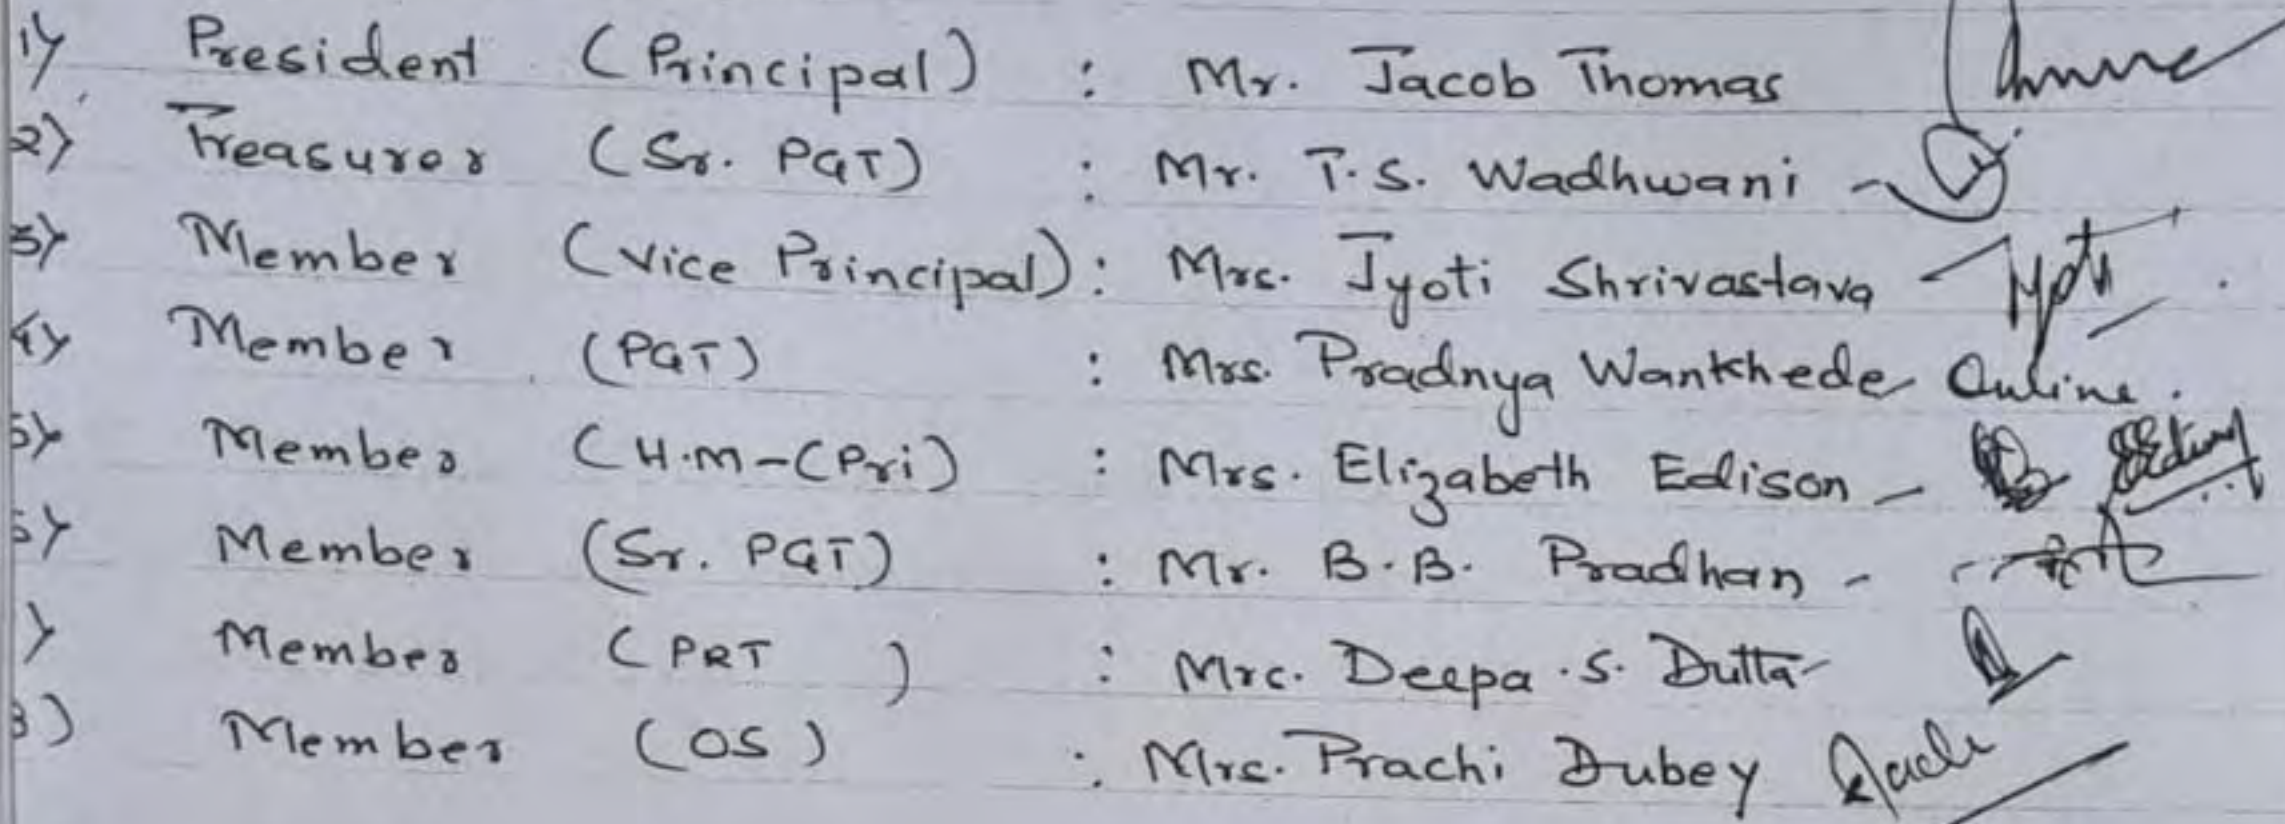 1) President (Principal) : Mr. Jacob Thomas
2) Treasurer (Sr. PGT) : Mr. T.S. Wadhwani -
3) Member (Vice Principal) : Mrs. Jyoti Shrivastava - Jyoti
4) Member (PGT) : Mrs. Pradnya Wankhede Online.
5) Member (H.M-(Pri) : Mrs. Elizabeth Edison -
6) Member (Sr. PGT) : Mr. B.B. Pradhan -
) Member (PRT ) : Mrs. Deepa .S. Dutta-
8) Member (OS) : Mrs. Prachi Dubey